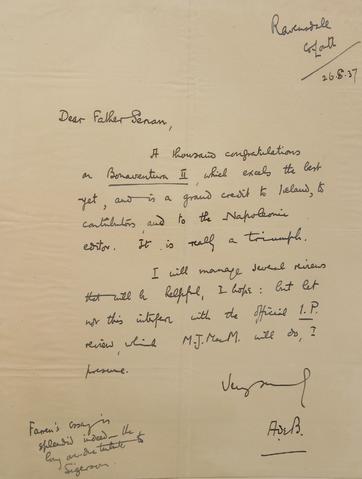 Ravensdale
Co Louth
26.8.37
Dear Father Senan,
A thousand congratulations
on Bonaventura II, which excels the last
yet, and is a grand credit to Ireland, to
contributors, and to the Napoleonic
editor. It is really a triumph.
I will manage several reviews
that will be helpful, I hope: but let
not this interfere with the official I.P.
review, which M.J. MacM. will do, I
presume.
A de B.
Farren's essay is
splendid indeed - the
long
Sigerson.